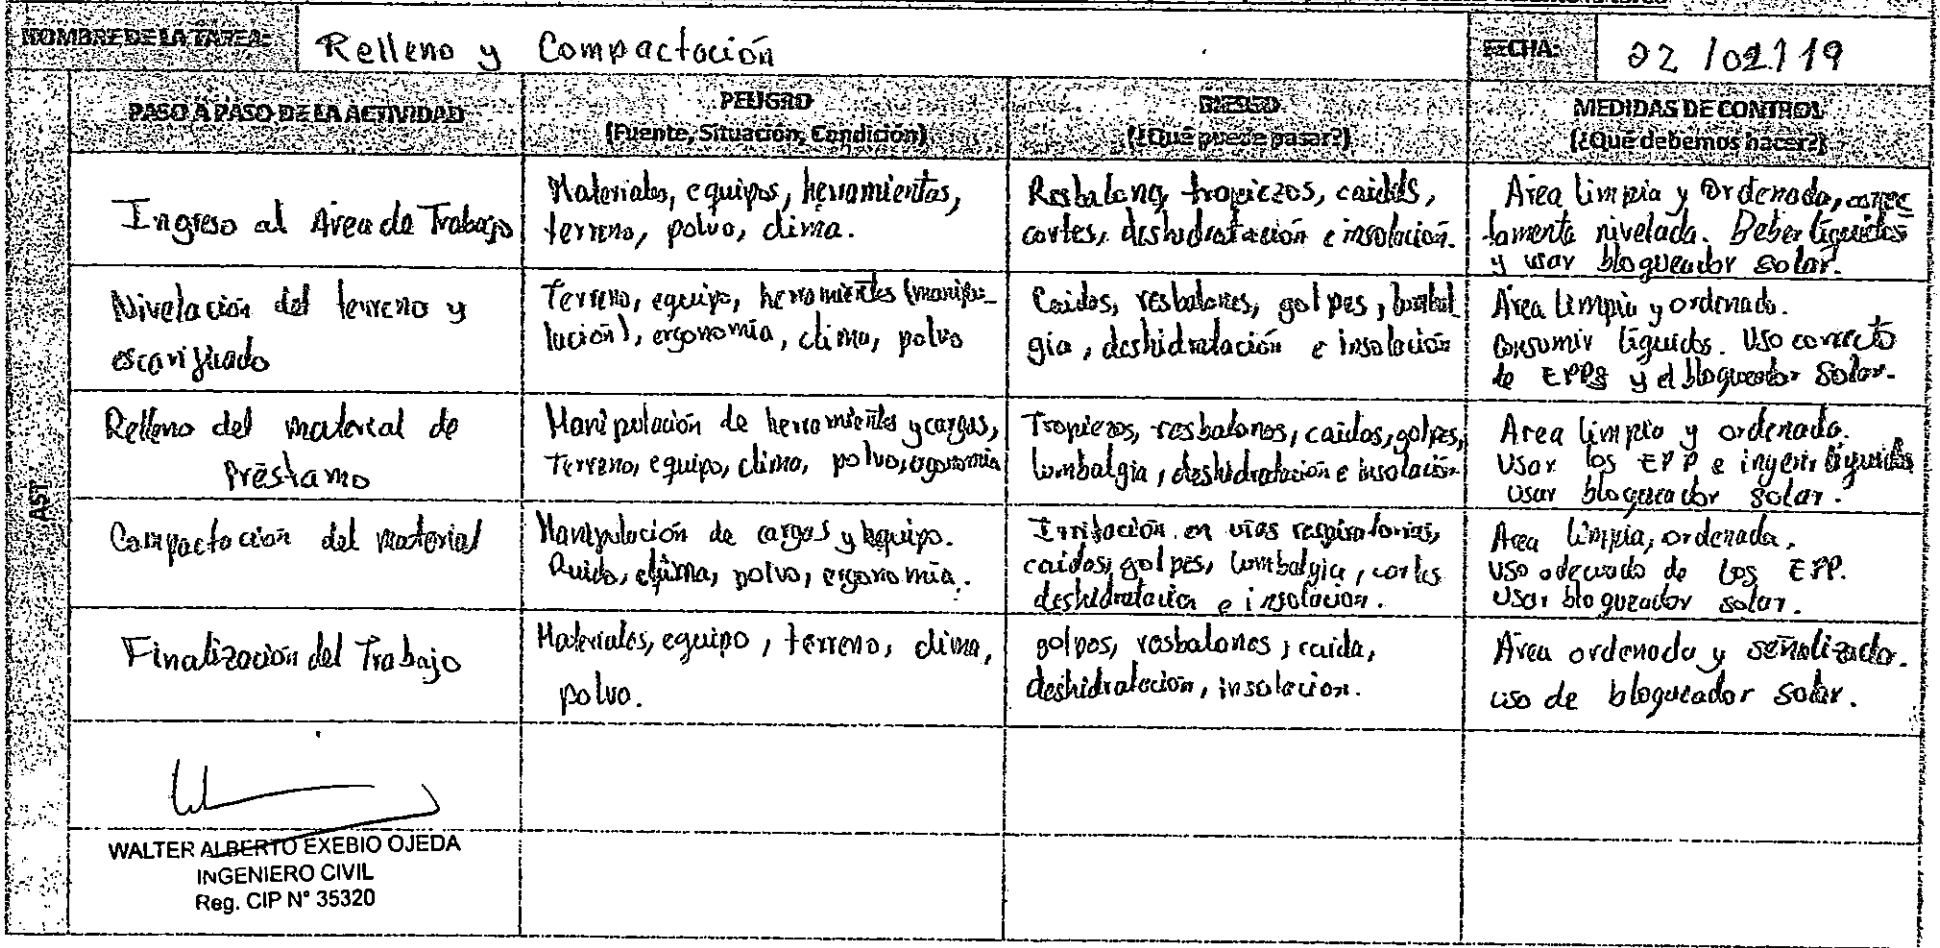 NOMBRE DE LA TAREA: Relleno y Compactación FECHA: 22 /02/19
PASO A PASO DE LA ACTIVIDAD
PELIGRO
(Fuente, Situación, Condición)
RIESGO
(¿Qué puede pasar?)
MEDIDAS DE CONTROL
(¿Qué debemos hacer?)
AST
Ingreso al Area de Trabajo
Materiales, equipos, herramientas,
terreno, polvo, clima.
Resbalong, tropiezos, caidas,
cortes, deshidratación e insolación.
Area limpia y ordenada, correc
tamente nivelada. Beber liquidos
y usar bloqueador solar.
Nivelación del terreno y
escarificado
Terreno, equipo, herramientas (manipu-
lación), ergonomía, clima, polvo
Caidas, resbalones, golpes, lumbal
gia, deshidratación e insolación
Area limpia y ordenado.
consumir liquidos. Uso correcto
de EPPS y el bloqueador Solar.
Relleno del material de
Préstamo
Manipulación de herramientas y cargas,
Terreno, equipo, clima, polvo, ergonomia
Tropiezos, resbalones, caidas, golpes,
lumbalgia, deshidratación e insolación
Area limpia y ordenada.
Usar los EPP e ingerir liquidos
usar bloqueador solar.
Compactación del material
Manipulación de cargas y equipo.
Ruido, clima, polvo, ergonomía.
Irritación en vías respiratorias,
caidas, golpes, lumbalgia, cortes
deshidratación e insolación.
Area limpia, ordenada,
uso adecuado de los EPP.
Usar bloqueador solar.
Finalización del Trabajo
Materiales, equipo, terreno, clima,
polvo.
golpes, resbalones, caida,
deshidratación, insolacion.
Area ordenada y señalizada.
uso de bloqueador solar.
WALTER ALBERTO EXEBIO OJEDA
INGENIERO CIVIL
Reg. CIP N° 35320